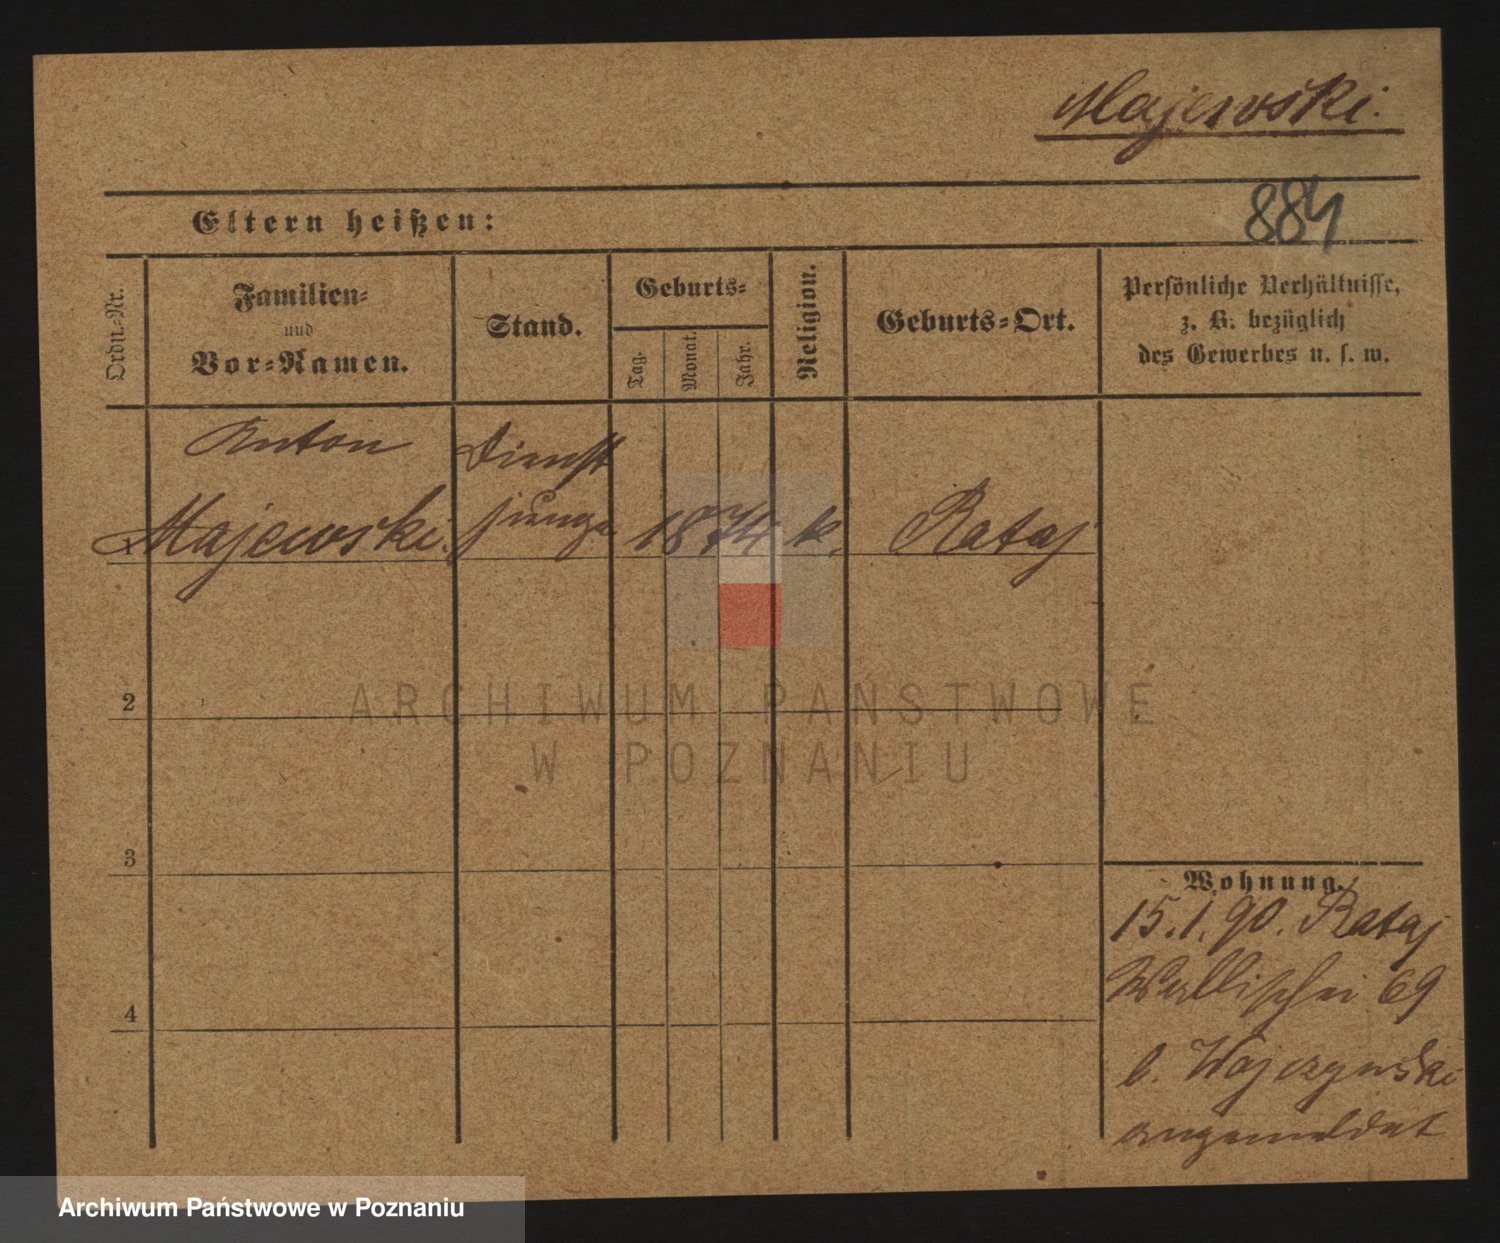 Majewski.
884
Eltern heißen:
Ordn=Nr.
Familien=
und
Vor=Namen.
Stand.
Geburts=
Tag.
Monat.
Jahr.
Religion.
Geburts=Ort.
Persönliche Verhältnisse,
z. B. bezüglich
des Gewerbes u. s. w.
Anton
Dienst
1 Majewski. junge 1874 k. Rataj
2
ARCHIWUM PAŃSTWOWE
W POZNANIU
3
Wohnung.
15.1.90. Rataj
Wallischei 69
4
b. Wojczynski
angemeldet
Archiwum Państwowe w Poznaniu